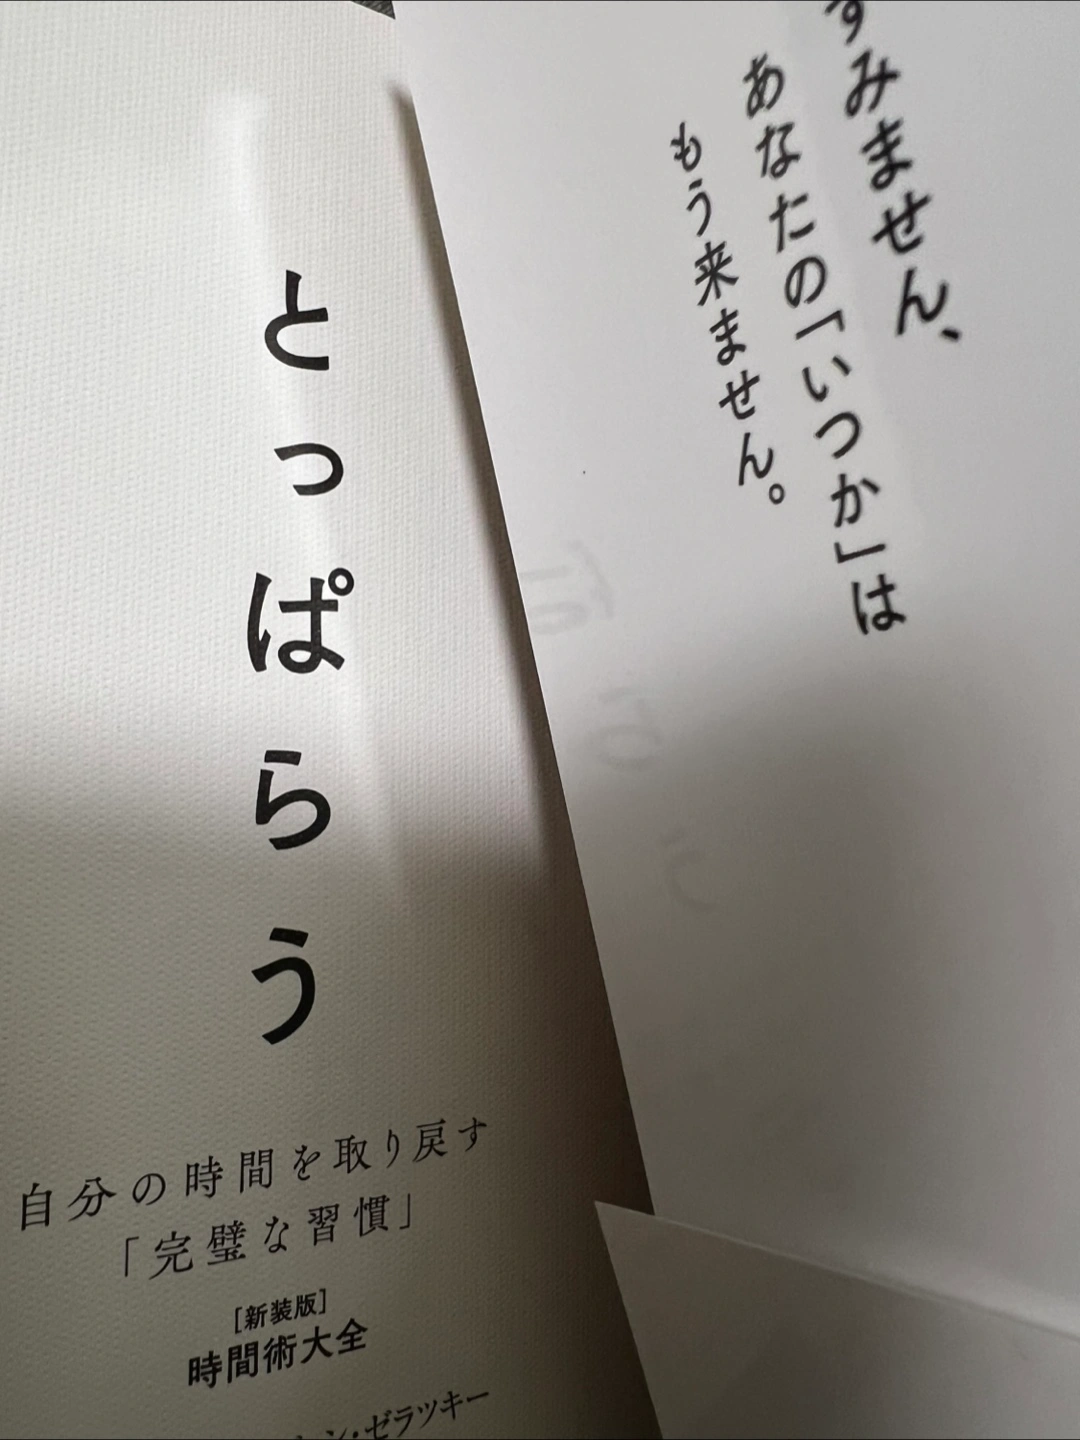 すみません、
あなたの「いつか」は
もう来ません。
とっぱらう
自分の時間を取り戻す
「完璧な習慣」
[新装版]
時間術大全
ゼラツキー